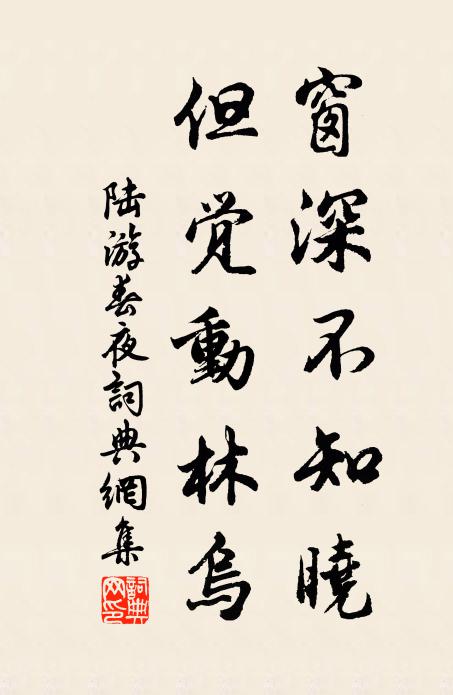 窗深不知曉
但觉動林烏
陸游春夜詞典網集
詞典网印